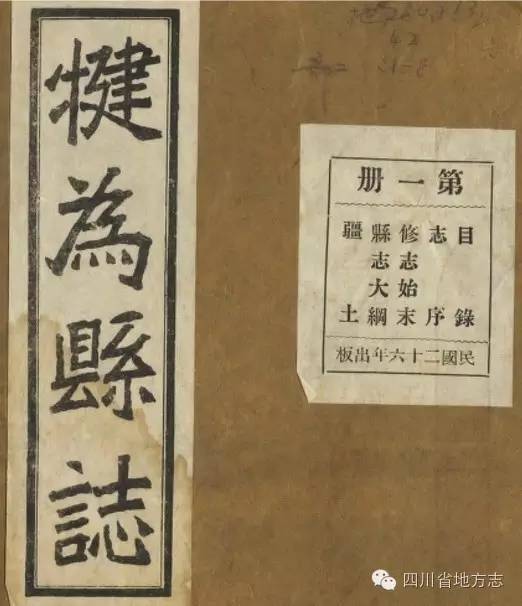 犍為縣誌
第一册
目錄
志序
修志始末
縣志大綱
疆土
民國二十六年出板
42
四川省地方志